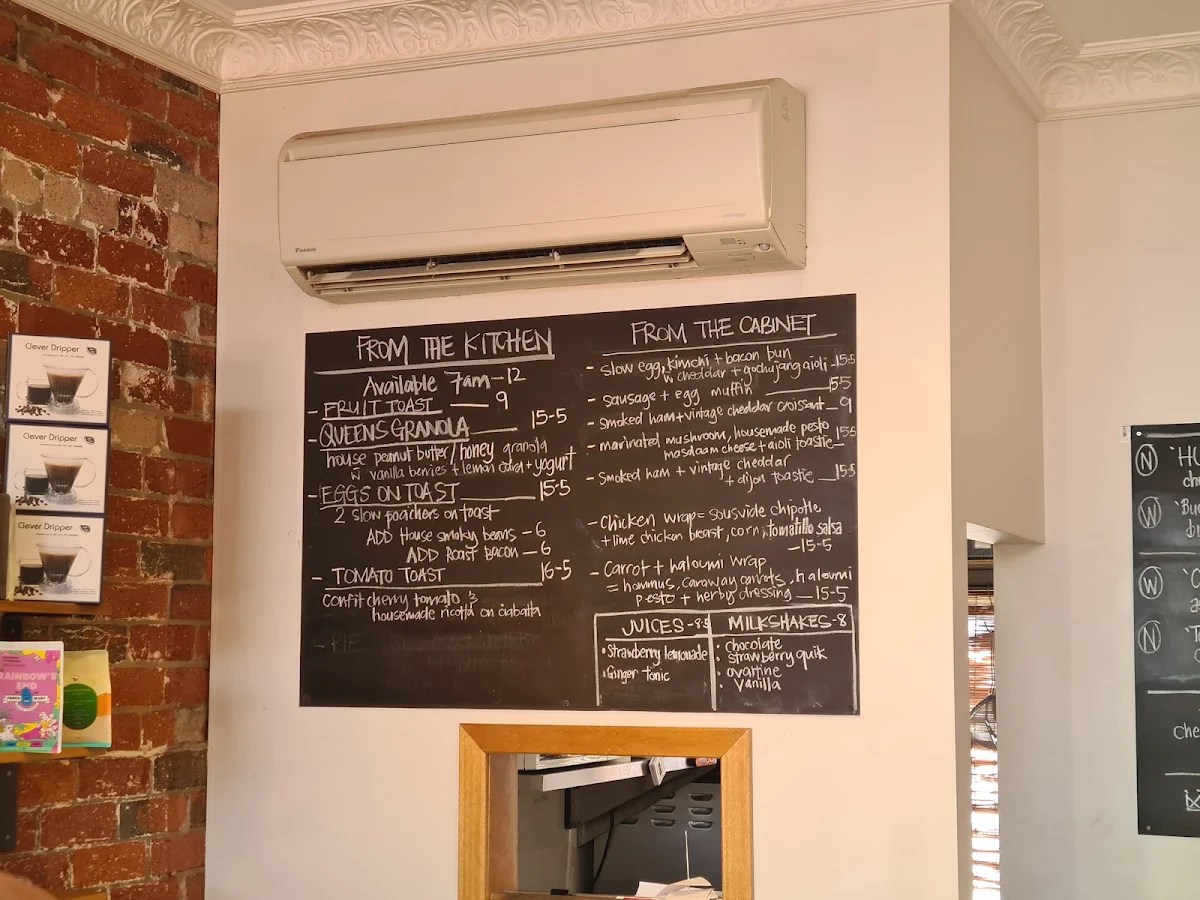 FROM THE KITCHEN
Available 7am-12
- FRUIT TOAST — 9
- QUEENS GRANOLA — 15-5
house peanut butter/honey granola
w vanilla berries + lemon curd + yogurt
- EGGS ON TOAST — 15-5
2 slow poachers on toast
ADD House smoky beans - 6
ADD Roast Bacon - 6
- TOMATO TOAST 16-5
confit cherry tomato &
housemade ricotta on ciabatta
- PIE
FROM THE CABINET
- slow egg, kimchi + bacon bun
w cheddar + gochujang aioli - 15-5
- sausage + egg muffin —
- smoked ham + vintage cheddar croissant - 9
- marinated mushroom, housemade pesto
masdaam cheese + aioli toastie - 15-5
- Smoked ham + vintage cheddar
+ dijon toastie — 15-5
- Chicken wrap = sousvide chipotle
+ lime chicken breast, corn, tomatillo salsa
- 15-5
- Carrot + haloumi wrap
= hommus, caraway carrots, haloumi
pesto + herby dressing — 15-5
JUICES - 8.5
• Strawberry lemonade
• Ginger tonic
MILKSHAKES - 8
• chocolate
• strawberry quik
• ovaltine
• vanilla
DAIKIN
Clever Dripper
Clever Dripper
Clever Dripper
RAINBOW'S
END
N
W
W
N
Che